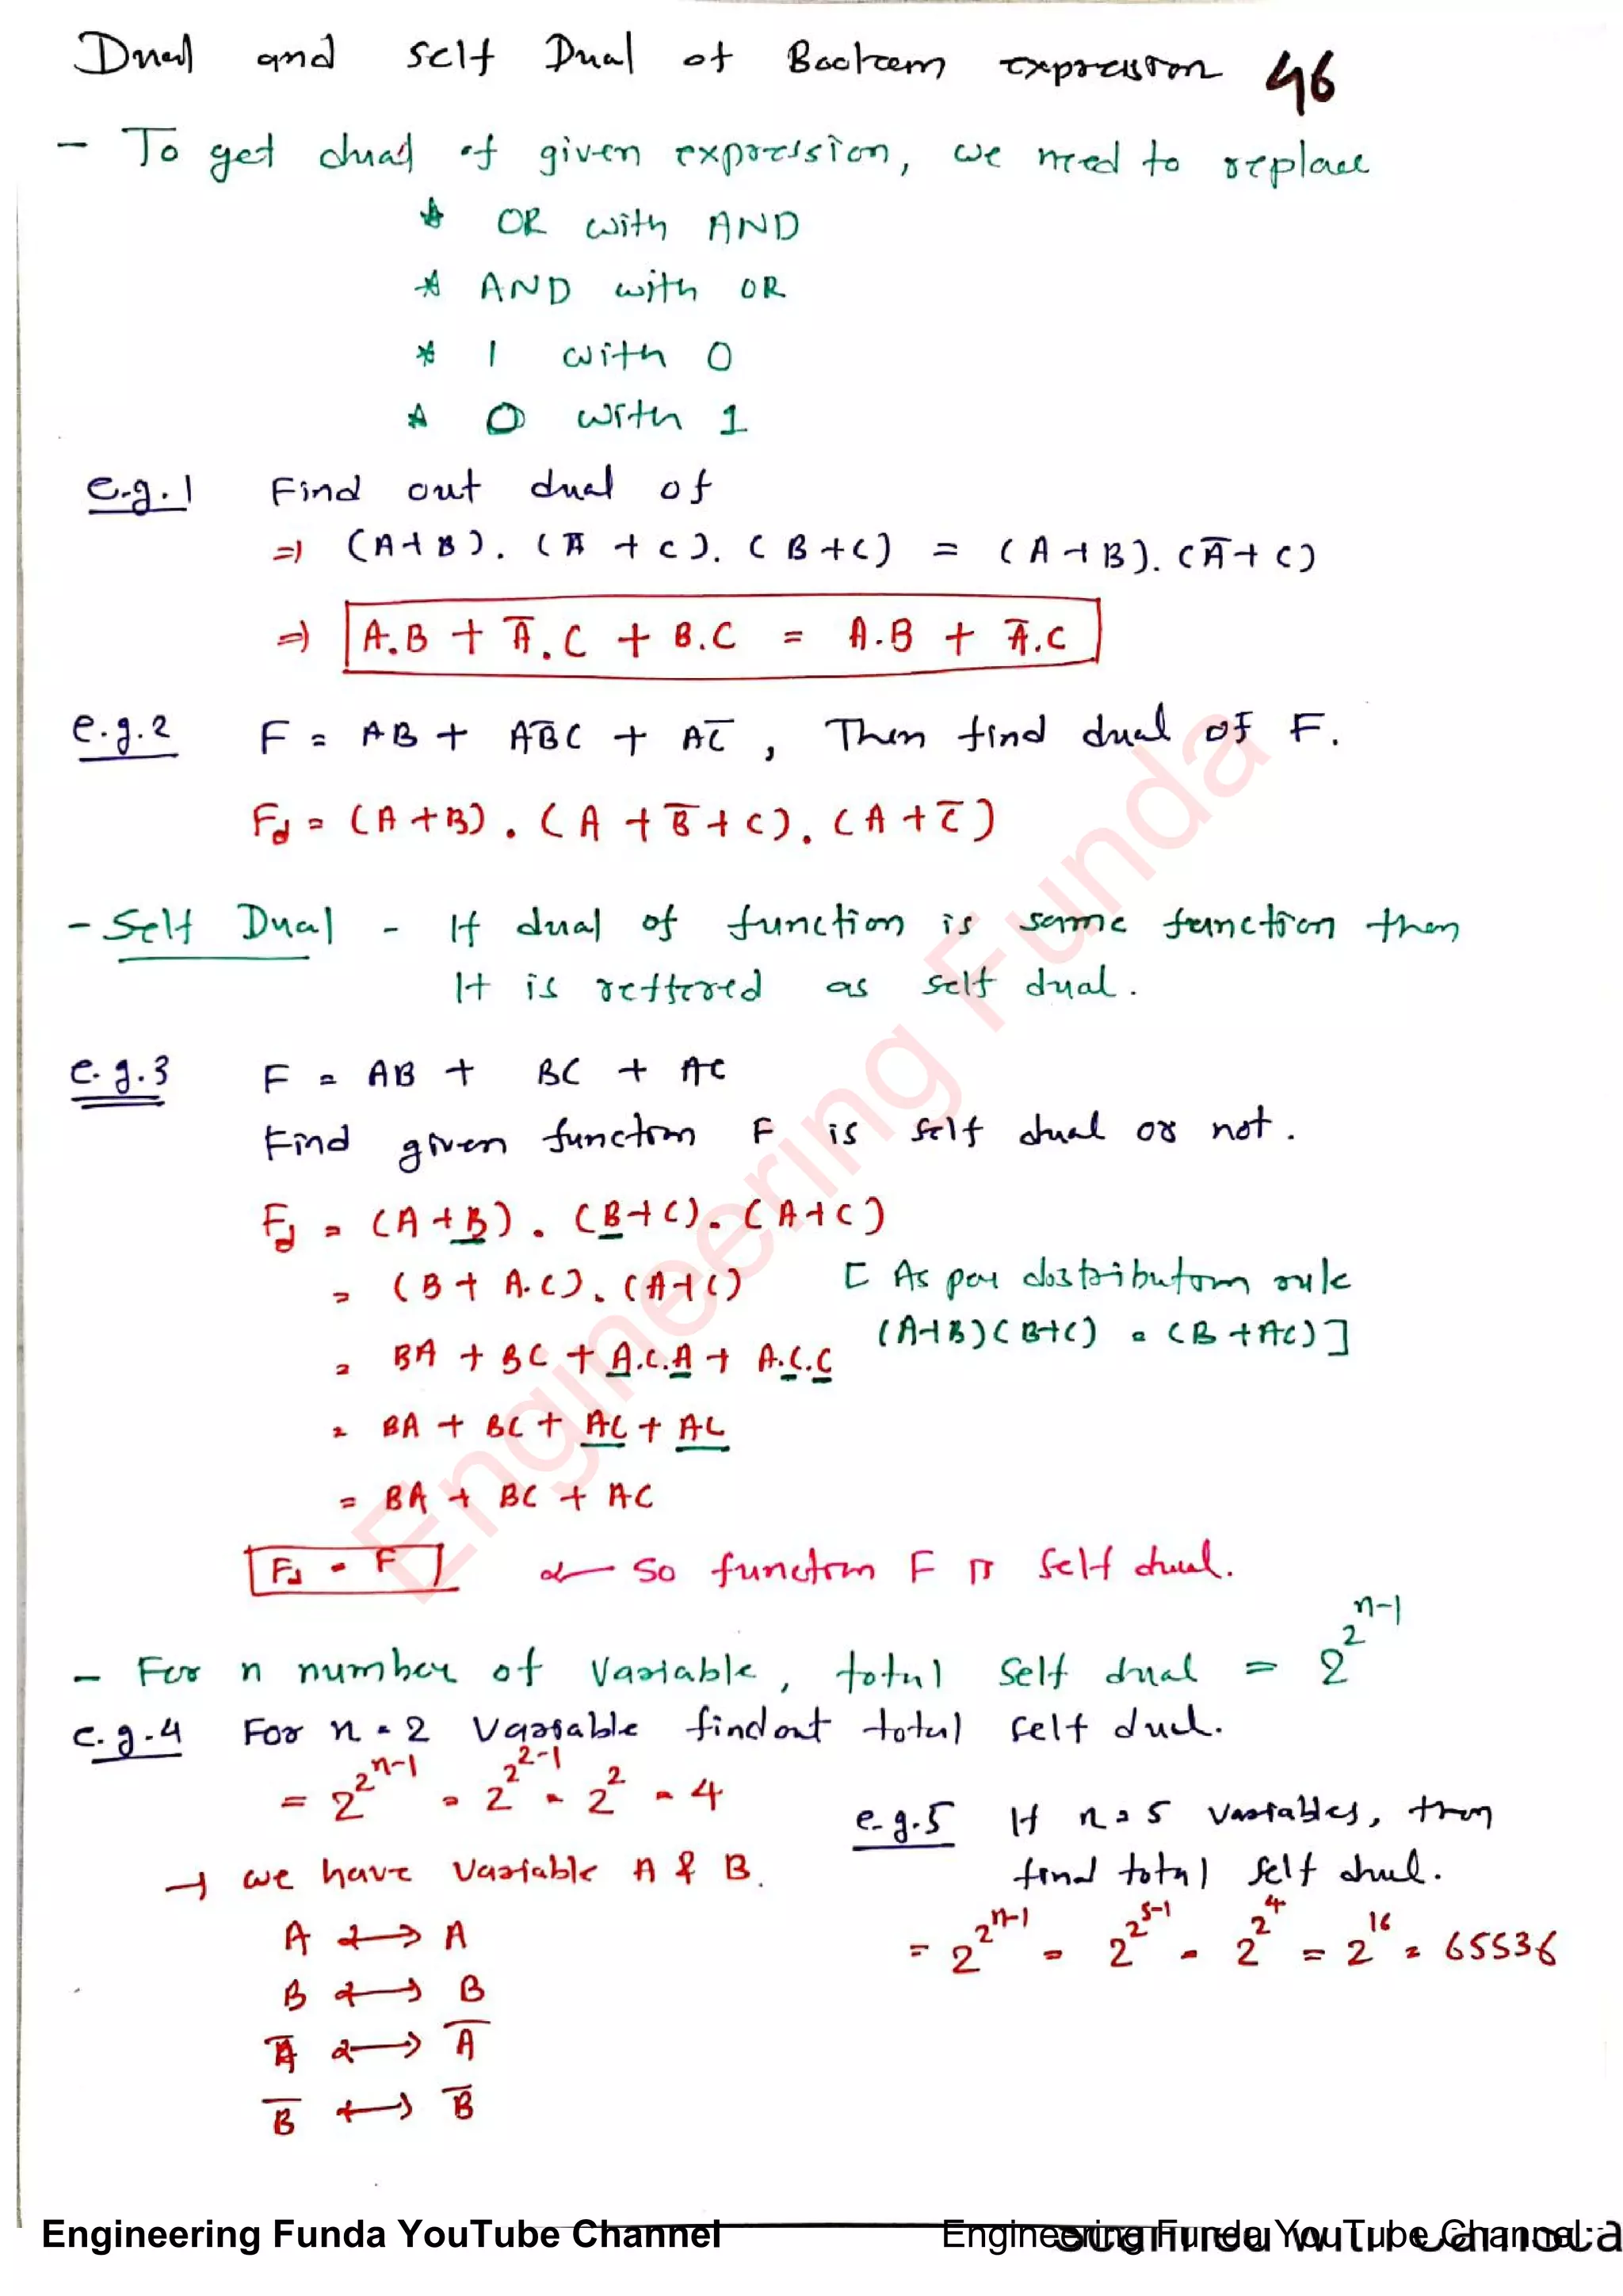 Dual and Self Dual of Boolean expression 46
- To get dual of given expression, we need to replace
* OR with AND
* AND with OR
* 1 with 0
* 0 with 1
e.g.1 Find out dual of
⇒ (A+B).(A̅+C).(B+C) = (A+B).(A̅+C)
⇒ A.B + A̅.C + B.C = A.B + A̅.C
e.g.2 F = AB + AB̅C + AC̅, Then find dual of F.
Fd = (A+B).(A+B̅+C).(A+C̅)
- Self Dual - If dual of function is same function then
It is reffered as self dual.
e.g.3 F = AB + BC + AC
Find given function F is self dual or not.
Fd = (A+B).(B+C).(A+C)
= (B+A.C).(A+C) [As per distribution rule
(A+B)(B+C) = (B+AC)]
= BA + BC + A.C.A + A.C.C
= BA + BC + AC + AC
= BA + BC + AC
Fd = F ← So function F is self dual.
- For n number of Variable, total Self dual = 2^2^n-1
e.g.4 For n = 2 Variable find out total self dual.
= 2^2^n-1 = 2^2^2-1 = 2^2 = 4
→ we have Variable A & B.
A ↔ A
B ↔ B
A̅ ↔ A̅
B̅ ↔ B̅
e.g.5 If n = 5 Variables, then
find total self dual.
= 2^2^n-1 = 2^2^5-1 = 2^2^4 = 2^16 = 65536
Engineering Funda
Engineering Funda YouTube Channel
Engineering Funda YouTube Channel